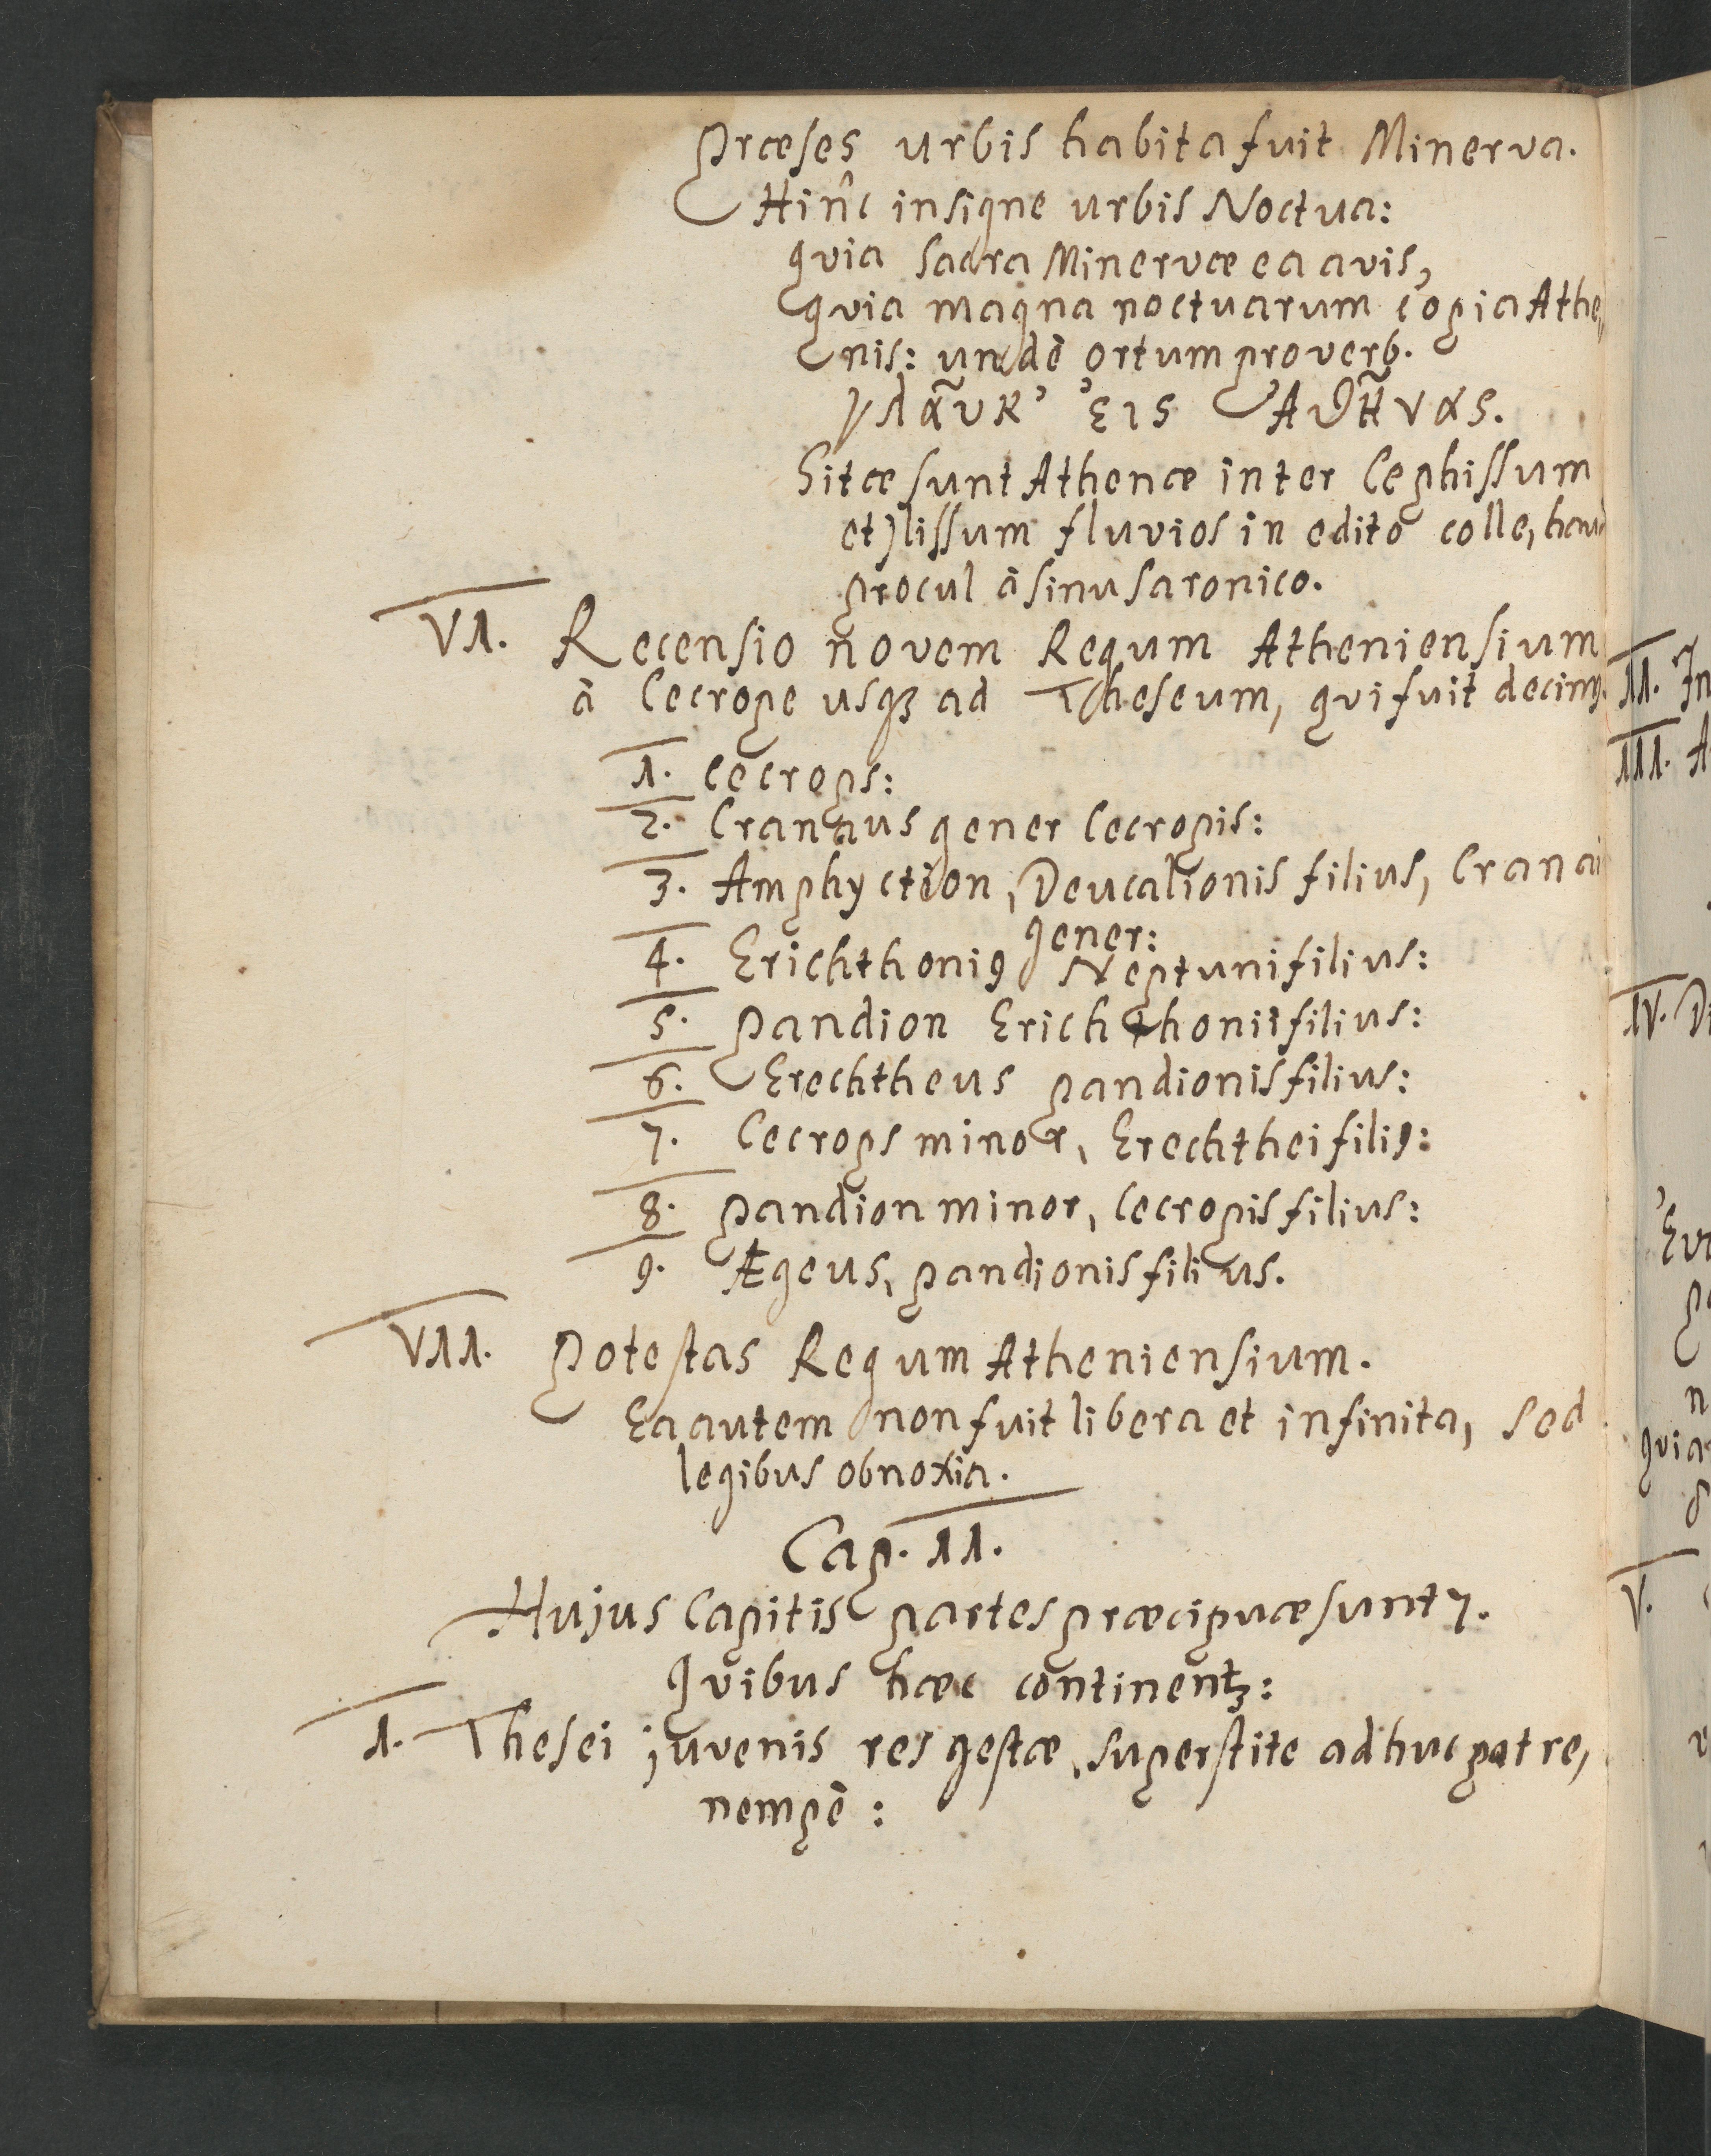 Præses urbis habita fuit Minerva.
Hinĉ insigne urbis Noctua:
quia sacra Minervæ ea avis,
quia magna noctuarum copia Athe,
nis: undè ortum proverb.
γλᾶυκ’ ἐις Ἀθῆνας.
Sitæ sunt Athenæ inter Cephissum
et Jlissum fluvios in edito colle, haud
procul à sinu Saronico.
VI. Recensio novem Regum Atheniensium
à Cecrope usq3 ad Theseum, qui fuit decimꝰ.
1. Cecrops:
2. Cranaus gener Cecropis:
3. Amphyction, Deucalionis filius, Cranai
gener:
4. Erichthoniꝰ Neptuni filius:
5. Pandion Erichthonii filius:
6. Erechtheus Pandionis filius:
7. Cecrops minor, Erechthei filiꝰ:
8. Pandion minor, Cecropis filius:
9. Ægeus, Pandionis filius.
VII. Potestas Regum Atheniensium.
Ea autem non fuit libera et infinita, sed
legibus obnoxia.
Cap. II.
Hujus Capitis partes præcipuæ sunt 7.
Quibus hæc continent3:
I. Thesei juvenis res gestæ, superstite adhuc patre,
nempè:
II. In
III. A
IV. Di
quia
V.